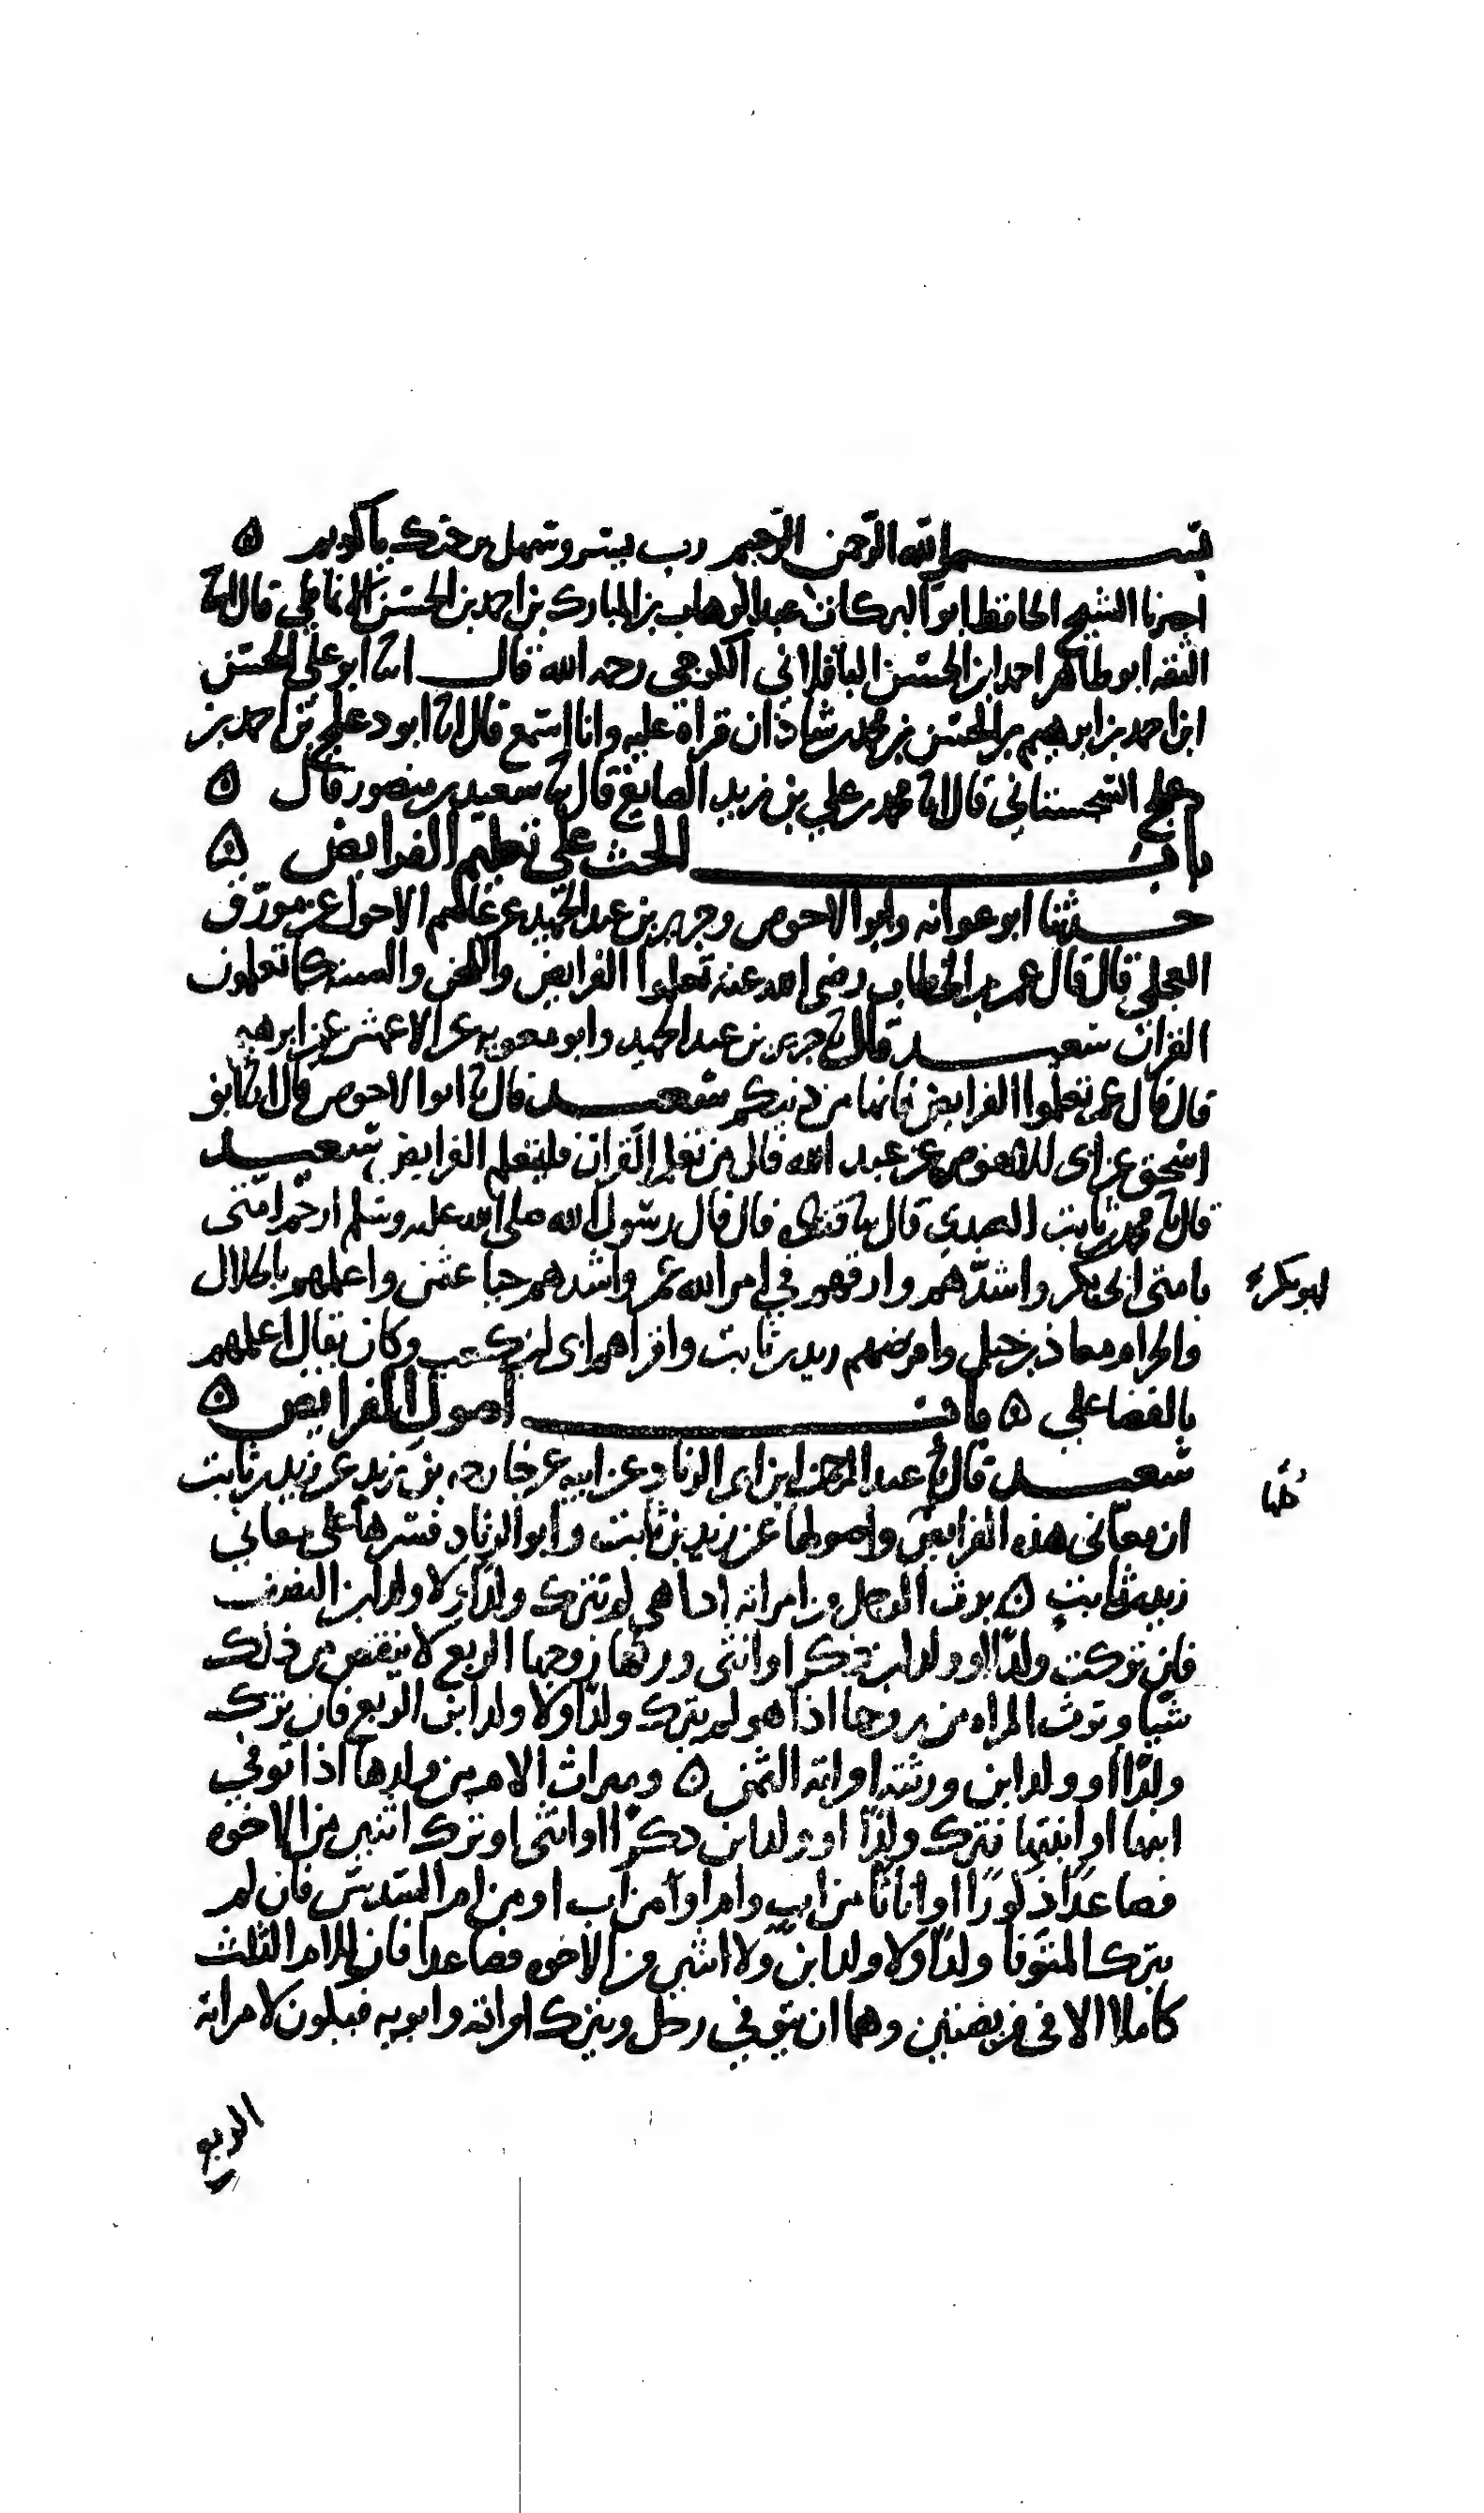 بسم الله الرحمن الرحيم رب يسر وسهل برحمتك يا كريم ه
اخبرنا الشيخ الحافظ ابو البركات عبد الوهاب بن المبارك بن احمد بن الحسن الانماطي قال انا
الثقه ابو طاهر احمد ابن الحسن الباقلاني الكرجي رحمه الله قال انا ابو علي الحسن
ابن احمد بن ابرهيم بن الحسن بن محمد بن شاذان قراة عليه وانا اسمع قال انا ابو دعلج بن احمد بن
دعلج السجستاني قال انا محمد بن علي بن زيد الصايغ قال نا سعيد بن منصور قال ه
باب الحث على تعليم الفرايض ه
حدثنا ابو عوانه وابو الاحوص وجرير بن عبد الحميد عن عاصم الاحول عن مورق
العجلي قال قال عمر بن الخطاب رضي الله عنه تعلموا الفرايض واللحن والسنه كما تعلمون
القران سعيد قال نا جرير بن عبد الحميد وابو معويه عن الاعمش عن ابرهيم
قال قال عمر تعلموا الفرايض فانها من دينكم سعيد قال نا ابو الاحوص قال انا ابو
اسحق عن ابي الاحوص عن عبد الله قال من تعلم القران فليتعلم الفرايض سعيد
قال نا محمد بن ثابت العبدي قال نا قتادة قال قال رسول الله صلى الله عليه وسلم ارحم امتي
بامتي ابي بكر واشدهم وارقهم في امر الله عمر واشدهم حيا عثمن واعلمهم بالحلال
ابو بكر
والحرام معاذ بن جبل وافرضهم زيد بن ثابت واقراهم ابي بن كعب وكان يقال اعلمهم
بالقضا علي ه باب اصول الفرايض ه
سعيد قال نا عبد الرحمن ابن ابي الزناد عن ابيه عن خارجه بن زيد عن زيد بن ثابت
ان معاني هذه الفرايض واصولها عن زيد بن ثابت وابو الزناد فسرها على معاني
زيد بن ثابت ه يرث الرجل من امراته اذا هي لم تترك ولدا ولا ولد ابن النصف
فان تركت ولدا او ولد ابن ذكر او انثى ورثها زوجها الربع لا ينقص من ذلك
شيا وترث المراه من زوجها اذا هو لم يترك ولدا ولا ولد ابن الربع فان ترك
ولدا او ولد ابن ورثته امراته الثمن ه وميراث الام من ولدها اذا توفي
ابنها او ابنتها فترك ولدا او ولد ابن ذكرا او انثى او ترك اثنين من الاخوه
فصاعدا ذكورا او اناثا من اب وام او من اب او من ام السدس فان لم
يترك المتوفا ولدا ولا ولد ابن ولا اثنين من الاخوه فصاعدا فان للام الثلث
كاملا الا في فريضتين وهما ان يتوفي رجل ويترك امراته وابويه فيكون لامراته
الربع